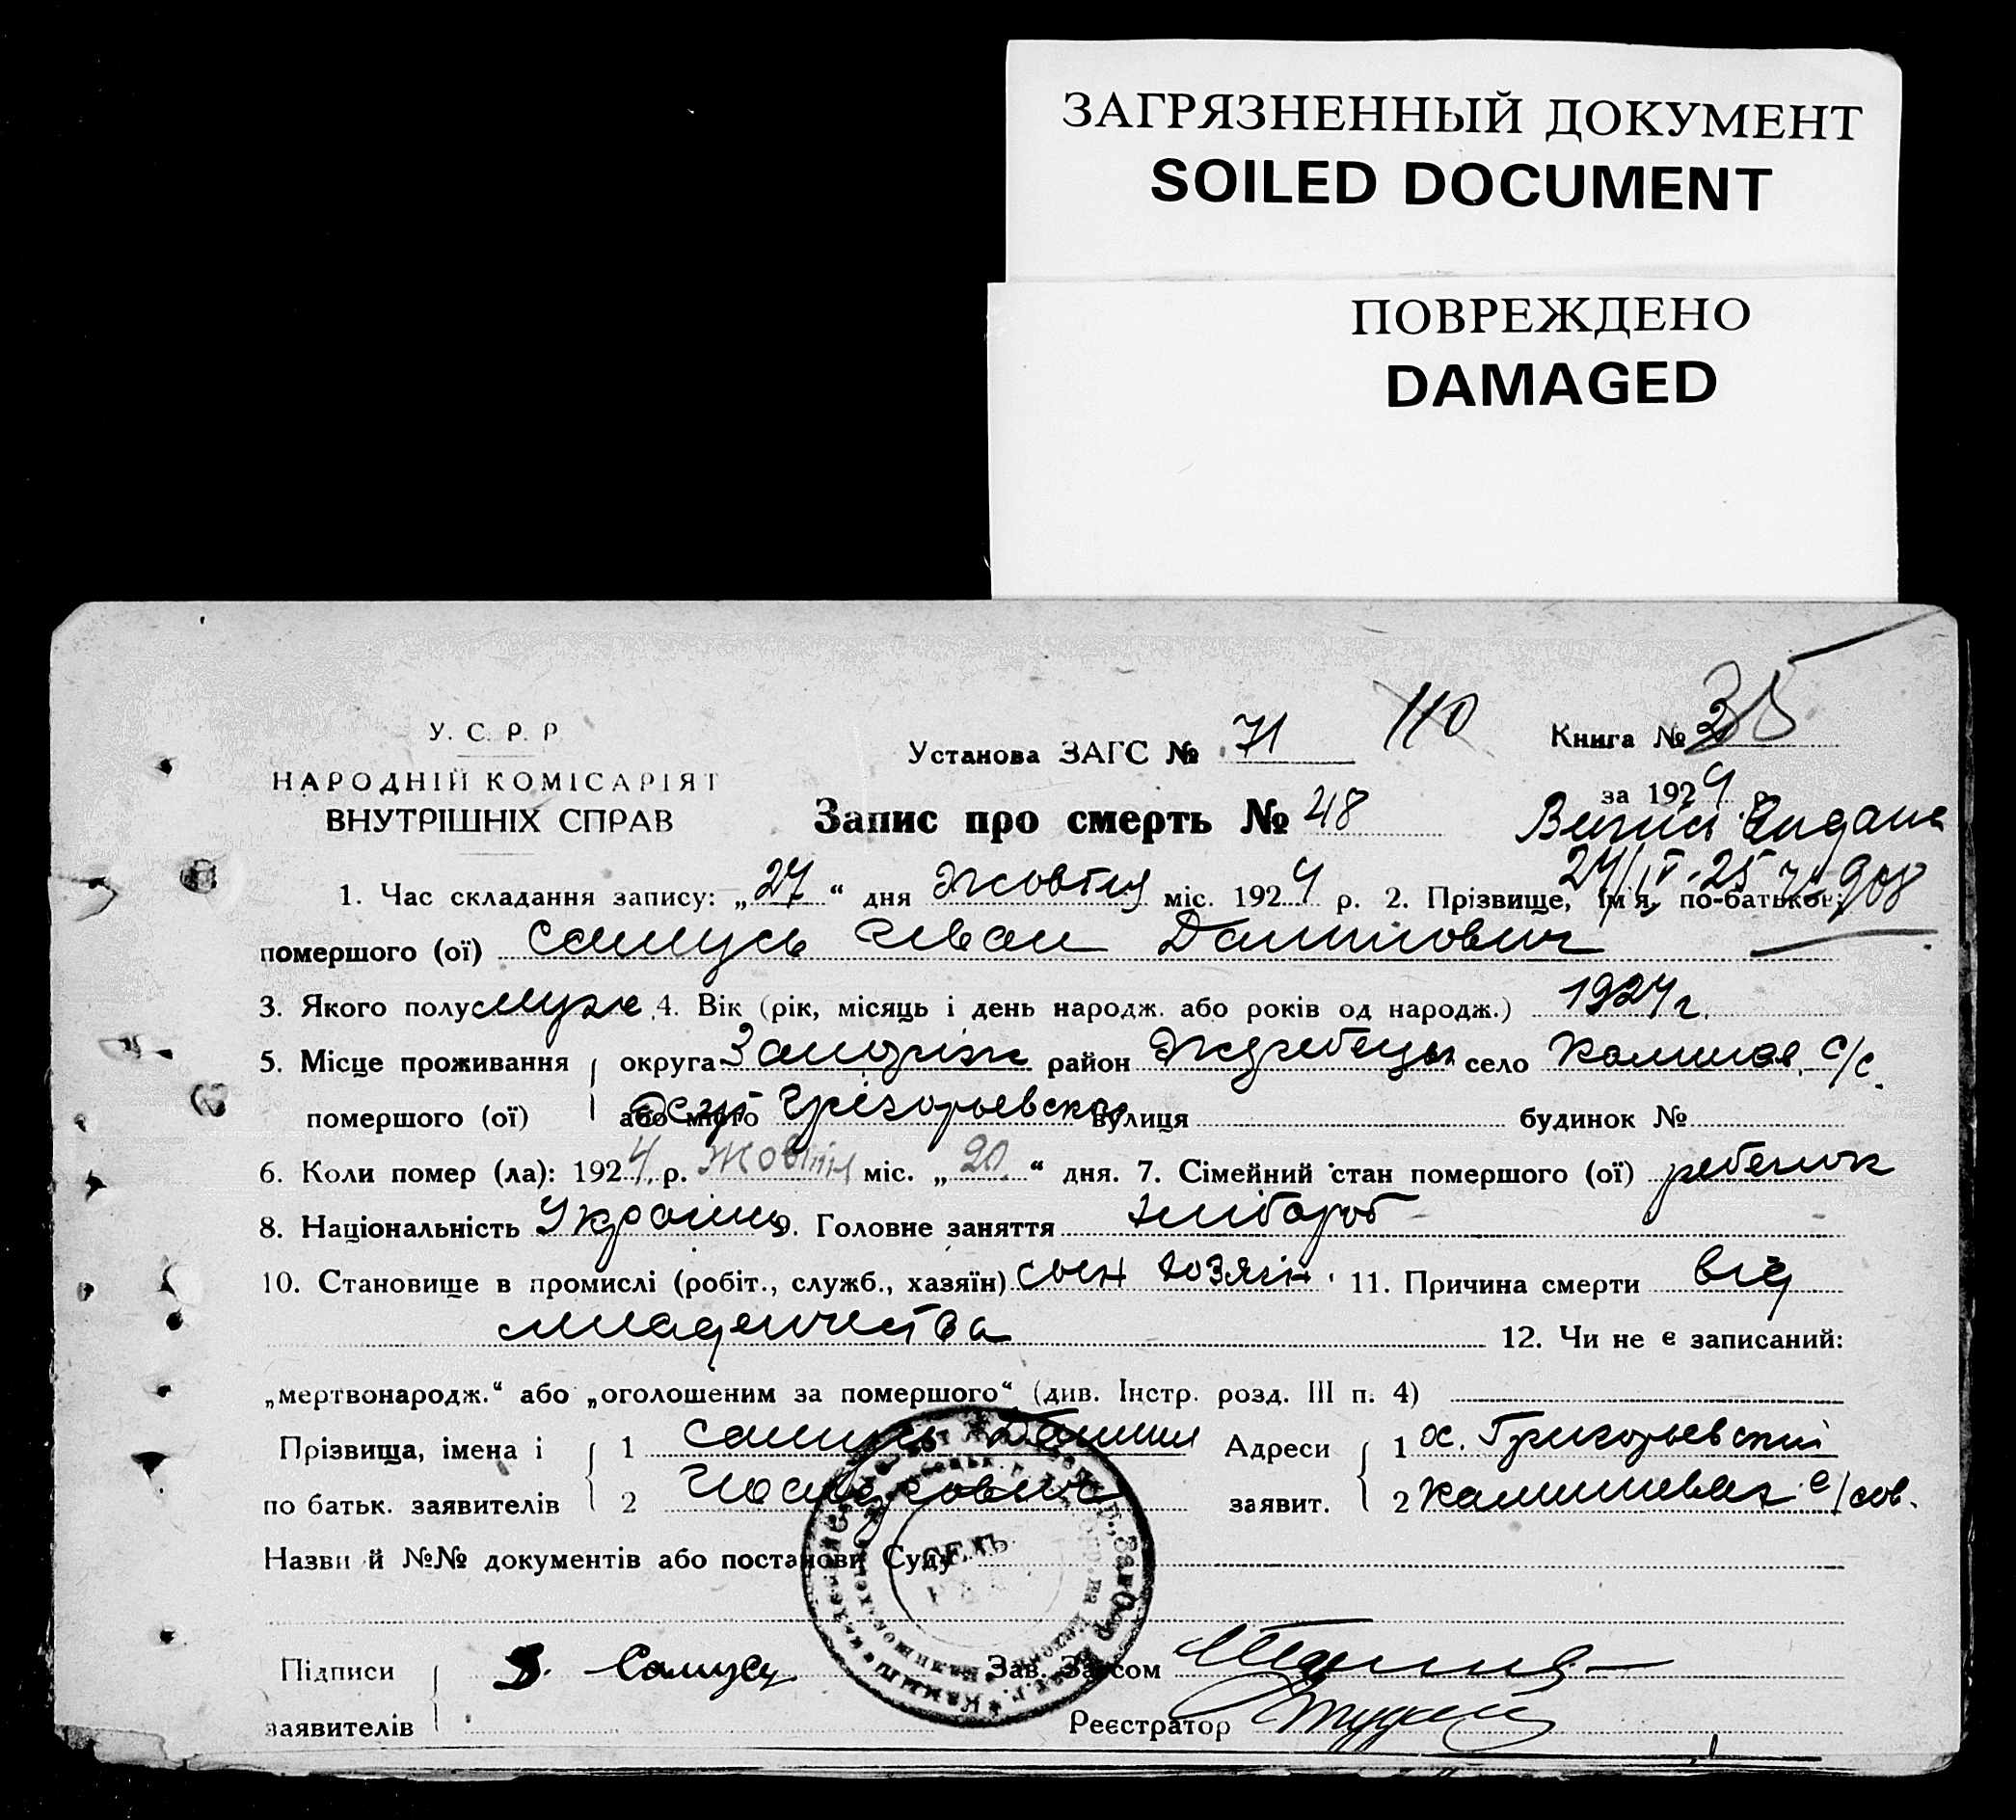 ЗАГРЯЗНЕННЫЙ ДОКУМЕНТ
SOILED DOCUMENT
ПОВРЕЖДЕНО
DAMAGED
У. С. Р. Р.
НАРОДНІЙ КОМІСАРІЯТ
ВНУТРІШНІХ СПРАВ
Установа ЗАГС № 71 110 Книга № 35
за 1924 р.
Запис про смерть № 48
1. Час складання запису: „27“ дня Жовтня міс. 1924 р. 2. Прізвище, ім'я, по-батькові:
помершого (ої) Самусь Иван Данилович
3. Якого полу муж 4. Вік (рік, місяць і день народж. або років од народж.) 1924 г.
5. Місце проживання округа Запоріж район Жеребецьк село Камишев. с/с.
помершого (ої) або місто Грігорьевской вулиця будинок №
6. Коли помер (ла): 1924 р. Жовтня міс. „20“ дня. 7. Сімейний стан помершого (ої) ребенок
8. Національність Украінец 9. Головне заняття хлібороб
10. Становище в промислі (робіт., служб., хазяїн) сын хозяін. 11. Причина смерти від
младенчества 12. Чи не є записаний:
„мертвонародж.“ або „оголошеним за помершого“ (див. Інстр. розд. III п. 4)
Прізвища, імена і 1 Самусь Данило Адреси 1 х. Григорьевский
по батьк. заявителів 2 заявит. 2 с/сов.
Назви й №№ документів або постанови Суду
Підписи Д. Самусь Зав. Загсом
заявителів Реєстратор